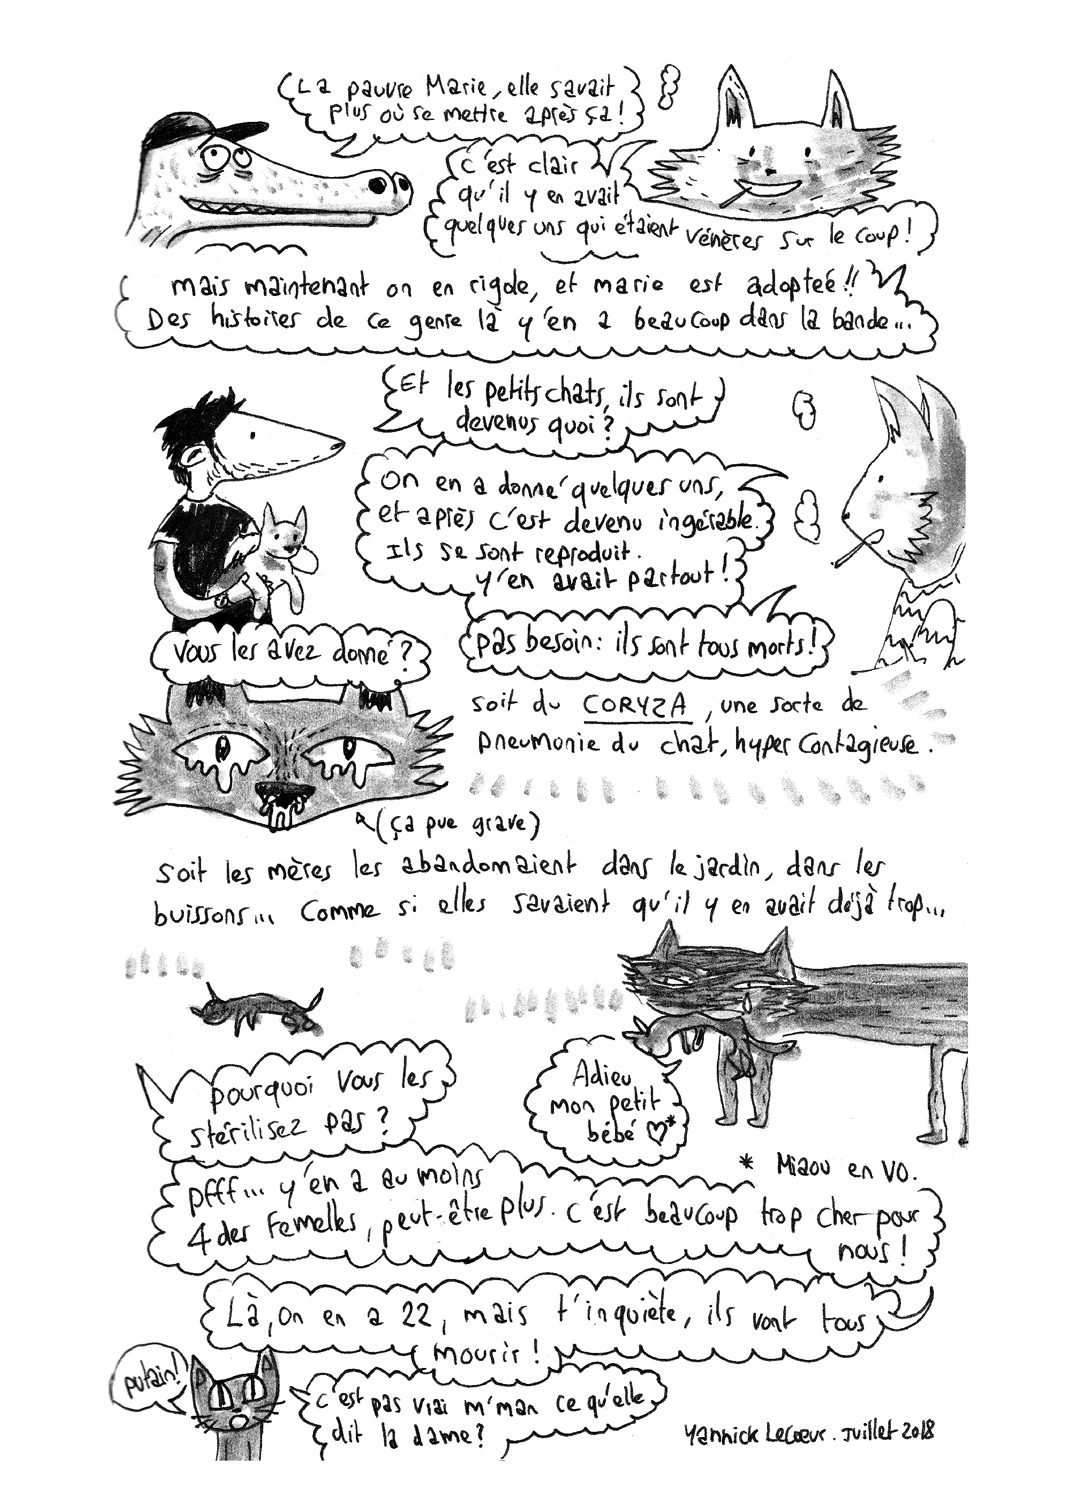 La pauvre Marie, elle savait
plus où se mettre après ça !
c'est clair
qu'il y en avait
quelques uns qui étaient vénères sur le coup !
mais maintenant on en rigole, et marie est adopteé !!
Des histoires de ce genre là y'en a beaucoup dans la bande...
Et les petits chats, ils sont
devenus quoi ?
On en a donné quelques uns,
et après c'est devenu ingérable.
Ils se sont reproduit.
y'en avait partout !
Vous les avez donné ?
pas besoin : ils sont tous morts !
soit du CORYZA, une sorte de
pneumonie du chat, hyper contagieuse.
(ça pue grave)
soit les mères les abandonnaient dans le jardin, dans les
buissons... Comme si elles savaient qu'il y en avait déjà trop...
pourquoi vous les
stérilisez pas ?
Adieu
mon petit
bébé ♡*
* Miaou en VO.
pfff... y'en a au moins
4 des femelles, peut-être plus. c'est beaucoup trop cher pour
nous !
Là, on en a 22, mais t'inquiète, ils vont tous
mourir !
putain!
c'est pas vrai m'man ce qu'elle
dit la dame ?
Yannick LeCoeur. Juillet 2018